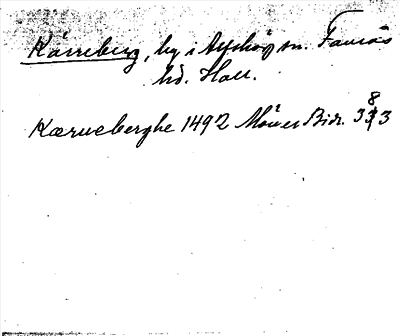 Kärreberg, by i Asthöp sn. Faurås
hd. Hall.
Kærneberghe 1492 Möller Bidr. 383